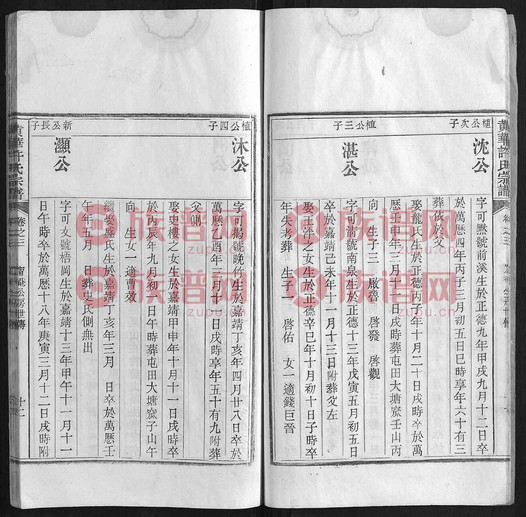 黄華許氏宗譜
卷之三
植公次子
沈公
字可默號前溪生於正德九年甲戌九月十二日卒
於萬歷四年丙子三月初五日巳時享年六十有三
葬依於父
娶龍氏生於正德丙子年十月二十日戌時卒於萬
歷壬申年三月十三日戌時葬屯田大塘窽壬山丙
向 生子三 啟曾 啓發 啓觀
植公三子
湛公
字可清號南泉生於正德十三年戊寅五月初五日
卒於嘉靖己未年十一月十三日附葬父左
娶王氏生於正德辛巳年十月初十日子時卒
年失考葬 生子一 啓佑 女一適錢巨晉
植公四子
沐公
字可揭號晚竹生於嘉靖丁亥年四月廿八日卒於
萬歷乙酉年三月十七日戌時享年五十有九附葬
父側
娶史樓之女生於嘉靖甲申年十月十一日戌時卒
於丙辰年九月初一日午時葬屯田大塘窽子山午
向 生女一適曹
繼娶盛氏生於嘉靖丁亥年三月 日卒於萬歷壬
午年五月 日葬史氏側無出
新公長子
灝公
字可文號梧岡生於嘉靖十三年甲午十一月十一
日午時卒於萬歷十八年庚寅三月十二日戌時附
黄華許氏宗譜
卷之三
十二